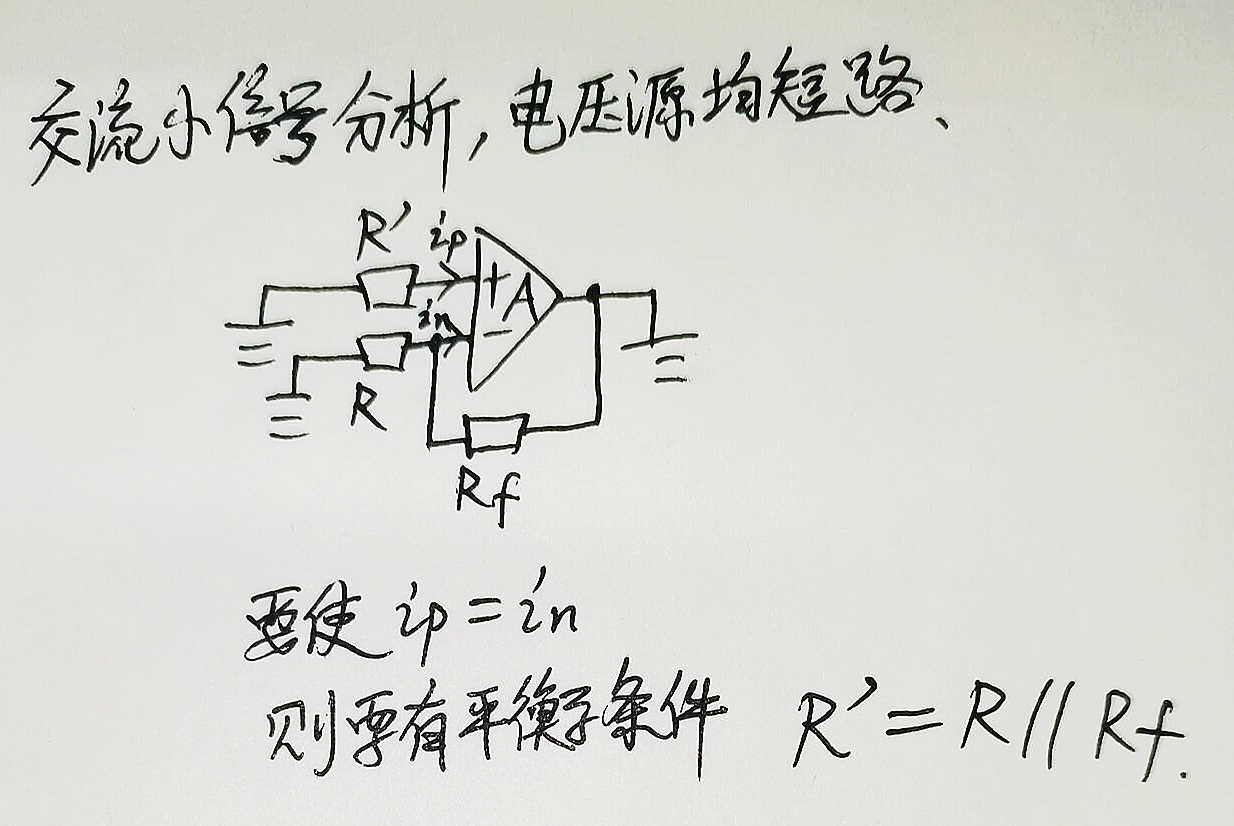 交流小信号分析,电压源均短路、
R' ip
+ A
in
-
R
Rf
要使 ip = in
则要有平衡条件 R' = R // Rf.